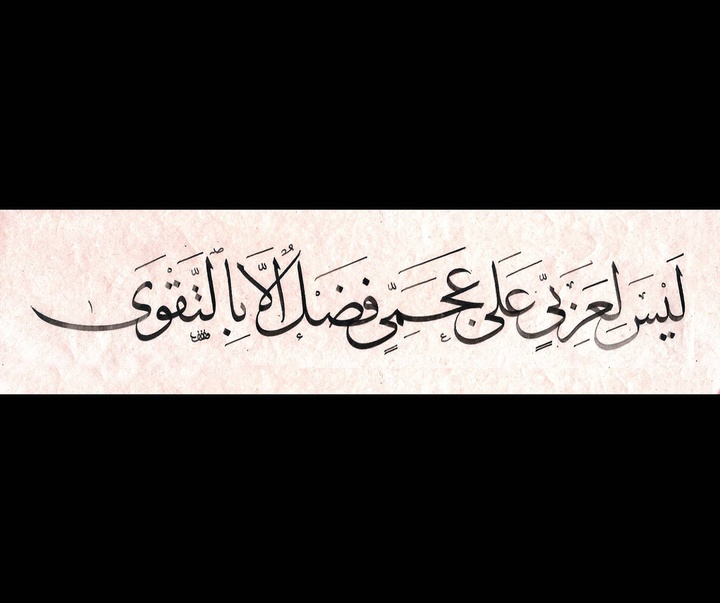 لَيْسَ لِعَرَبِيٍّ عَلَى عَجَمِيٍّ فَضْلٌ إِلَّا بِالتَّقْوَى